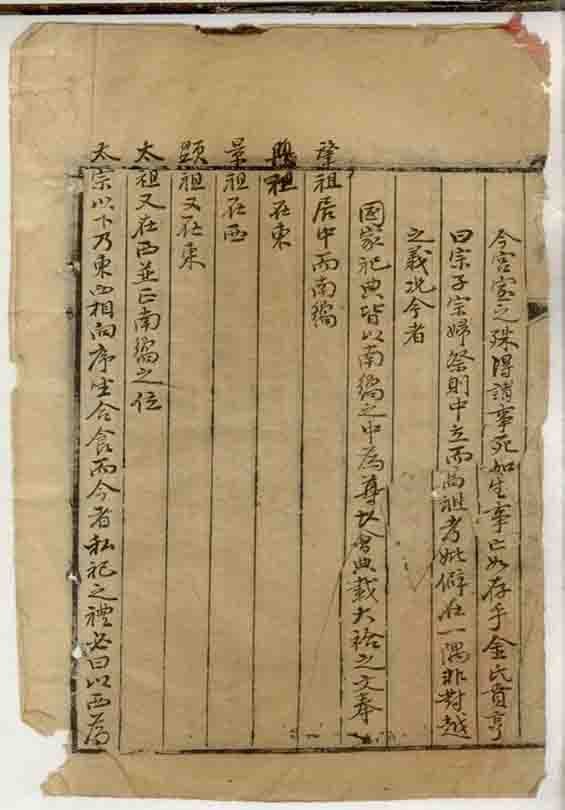 今宮室之殊得謂事死如生事亡如存乎金氏賁亨
曰宗子宗婦祭則中立而高祖考妣僻在一隅非對越
之義況今者
國家祀典皆以南嚮之中為尊故會典載大祫之文奉
肇祖居中而南嚮
興祖在東
景祖在西
顯祖又在東
太祖又在西並正南嚮之位
太宗以下乃東西相向序坐合食而今者私祀之禮必曰以西為